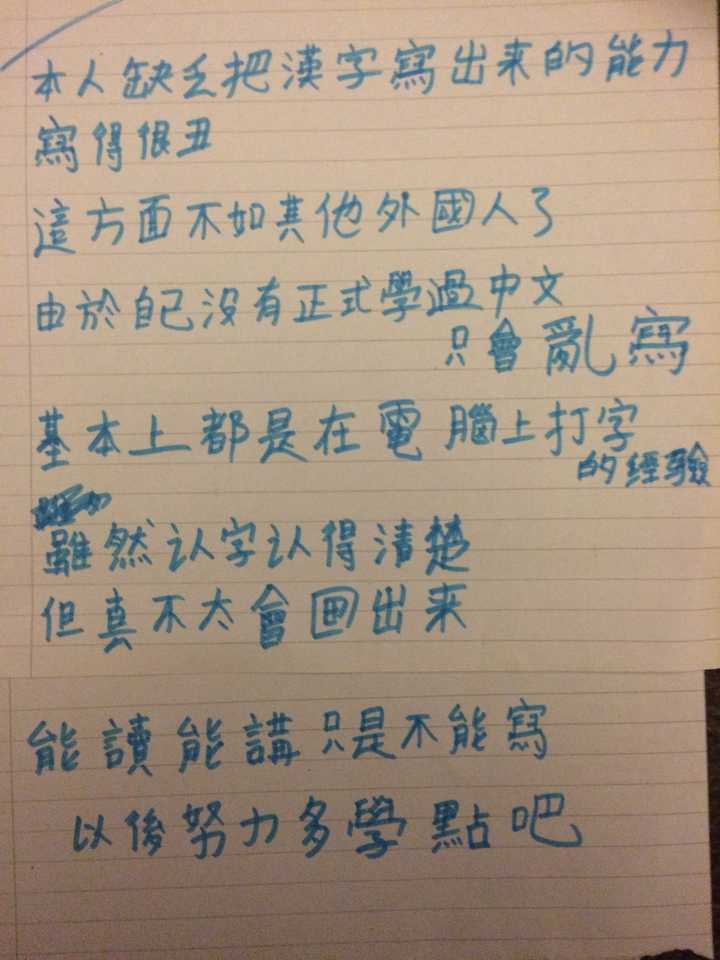 本人缺乏把漢字寫出来的能力
寫得很丑
這方面不如其他外國人了
由於自己没有正式學過中文
只會亂寫
基本上都是在電腦上打字
的經驗
雖然认字认得清楚
但真不太會画出来
能讀能講只是不能寫
以後努力多學點吧